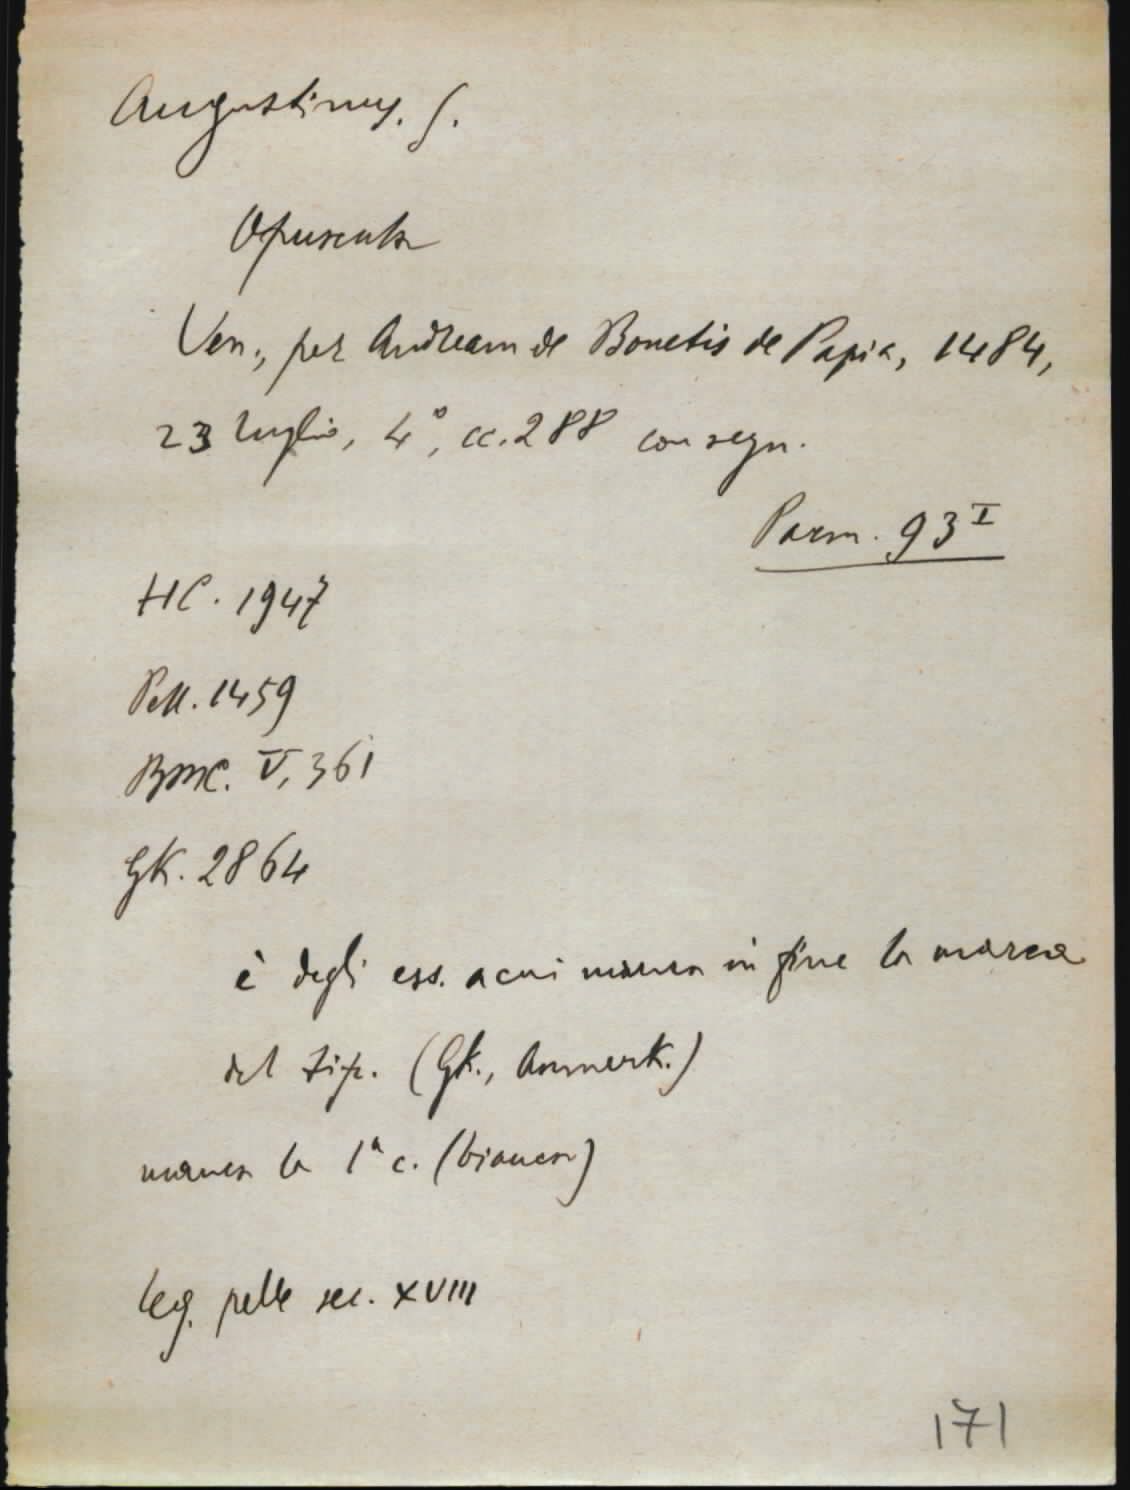 Augustinus. S.
Opuscula
Ven., per Andream de Bonetis de Papia, 1484,
23 luglio, 4°, cc. 288 con segn.
Parm. 93 I
HC. 1947
Pell. 1459
BMC. V, 361
GK. 2864
è degli ess. a cui manca in fine la marca
del tip. (GK., Anmerk.)
manca la 1ª c. (bianca)
leg. pelle sec. XVIII
171